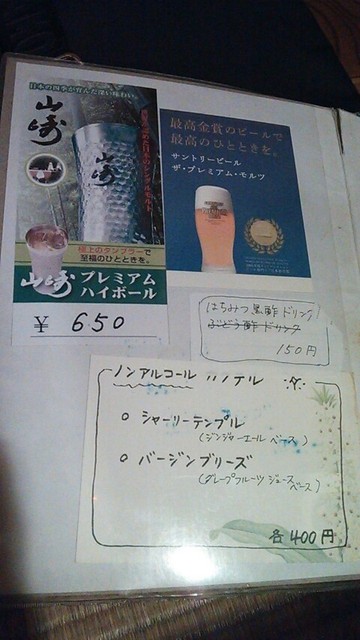 日本の四季が育んだ深い味わい。
山崎
世界が認めた日本のシングルモルト
山崎
極上のタンブラーで
至福のひとときを。
山崎 プレミアム
ハイボール
¥ 650
最高金賞のビールで
最高のひとときを。
サントリービール
ザ・プレミアム・モルツ
はちみつ黒酢ドリンク
ぶどう酢ドリンク
150円
ノンアルコール カクテル
○ シャーリーテンプル
(ジンジャーエール ベース)
○ バージンブリーズ
(グレープフルーツ ジュース
ベース)
各400円